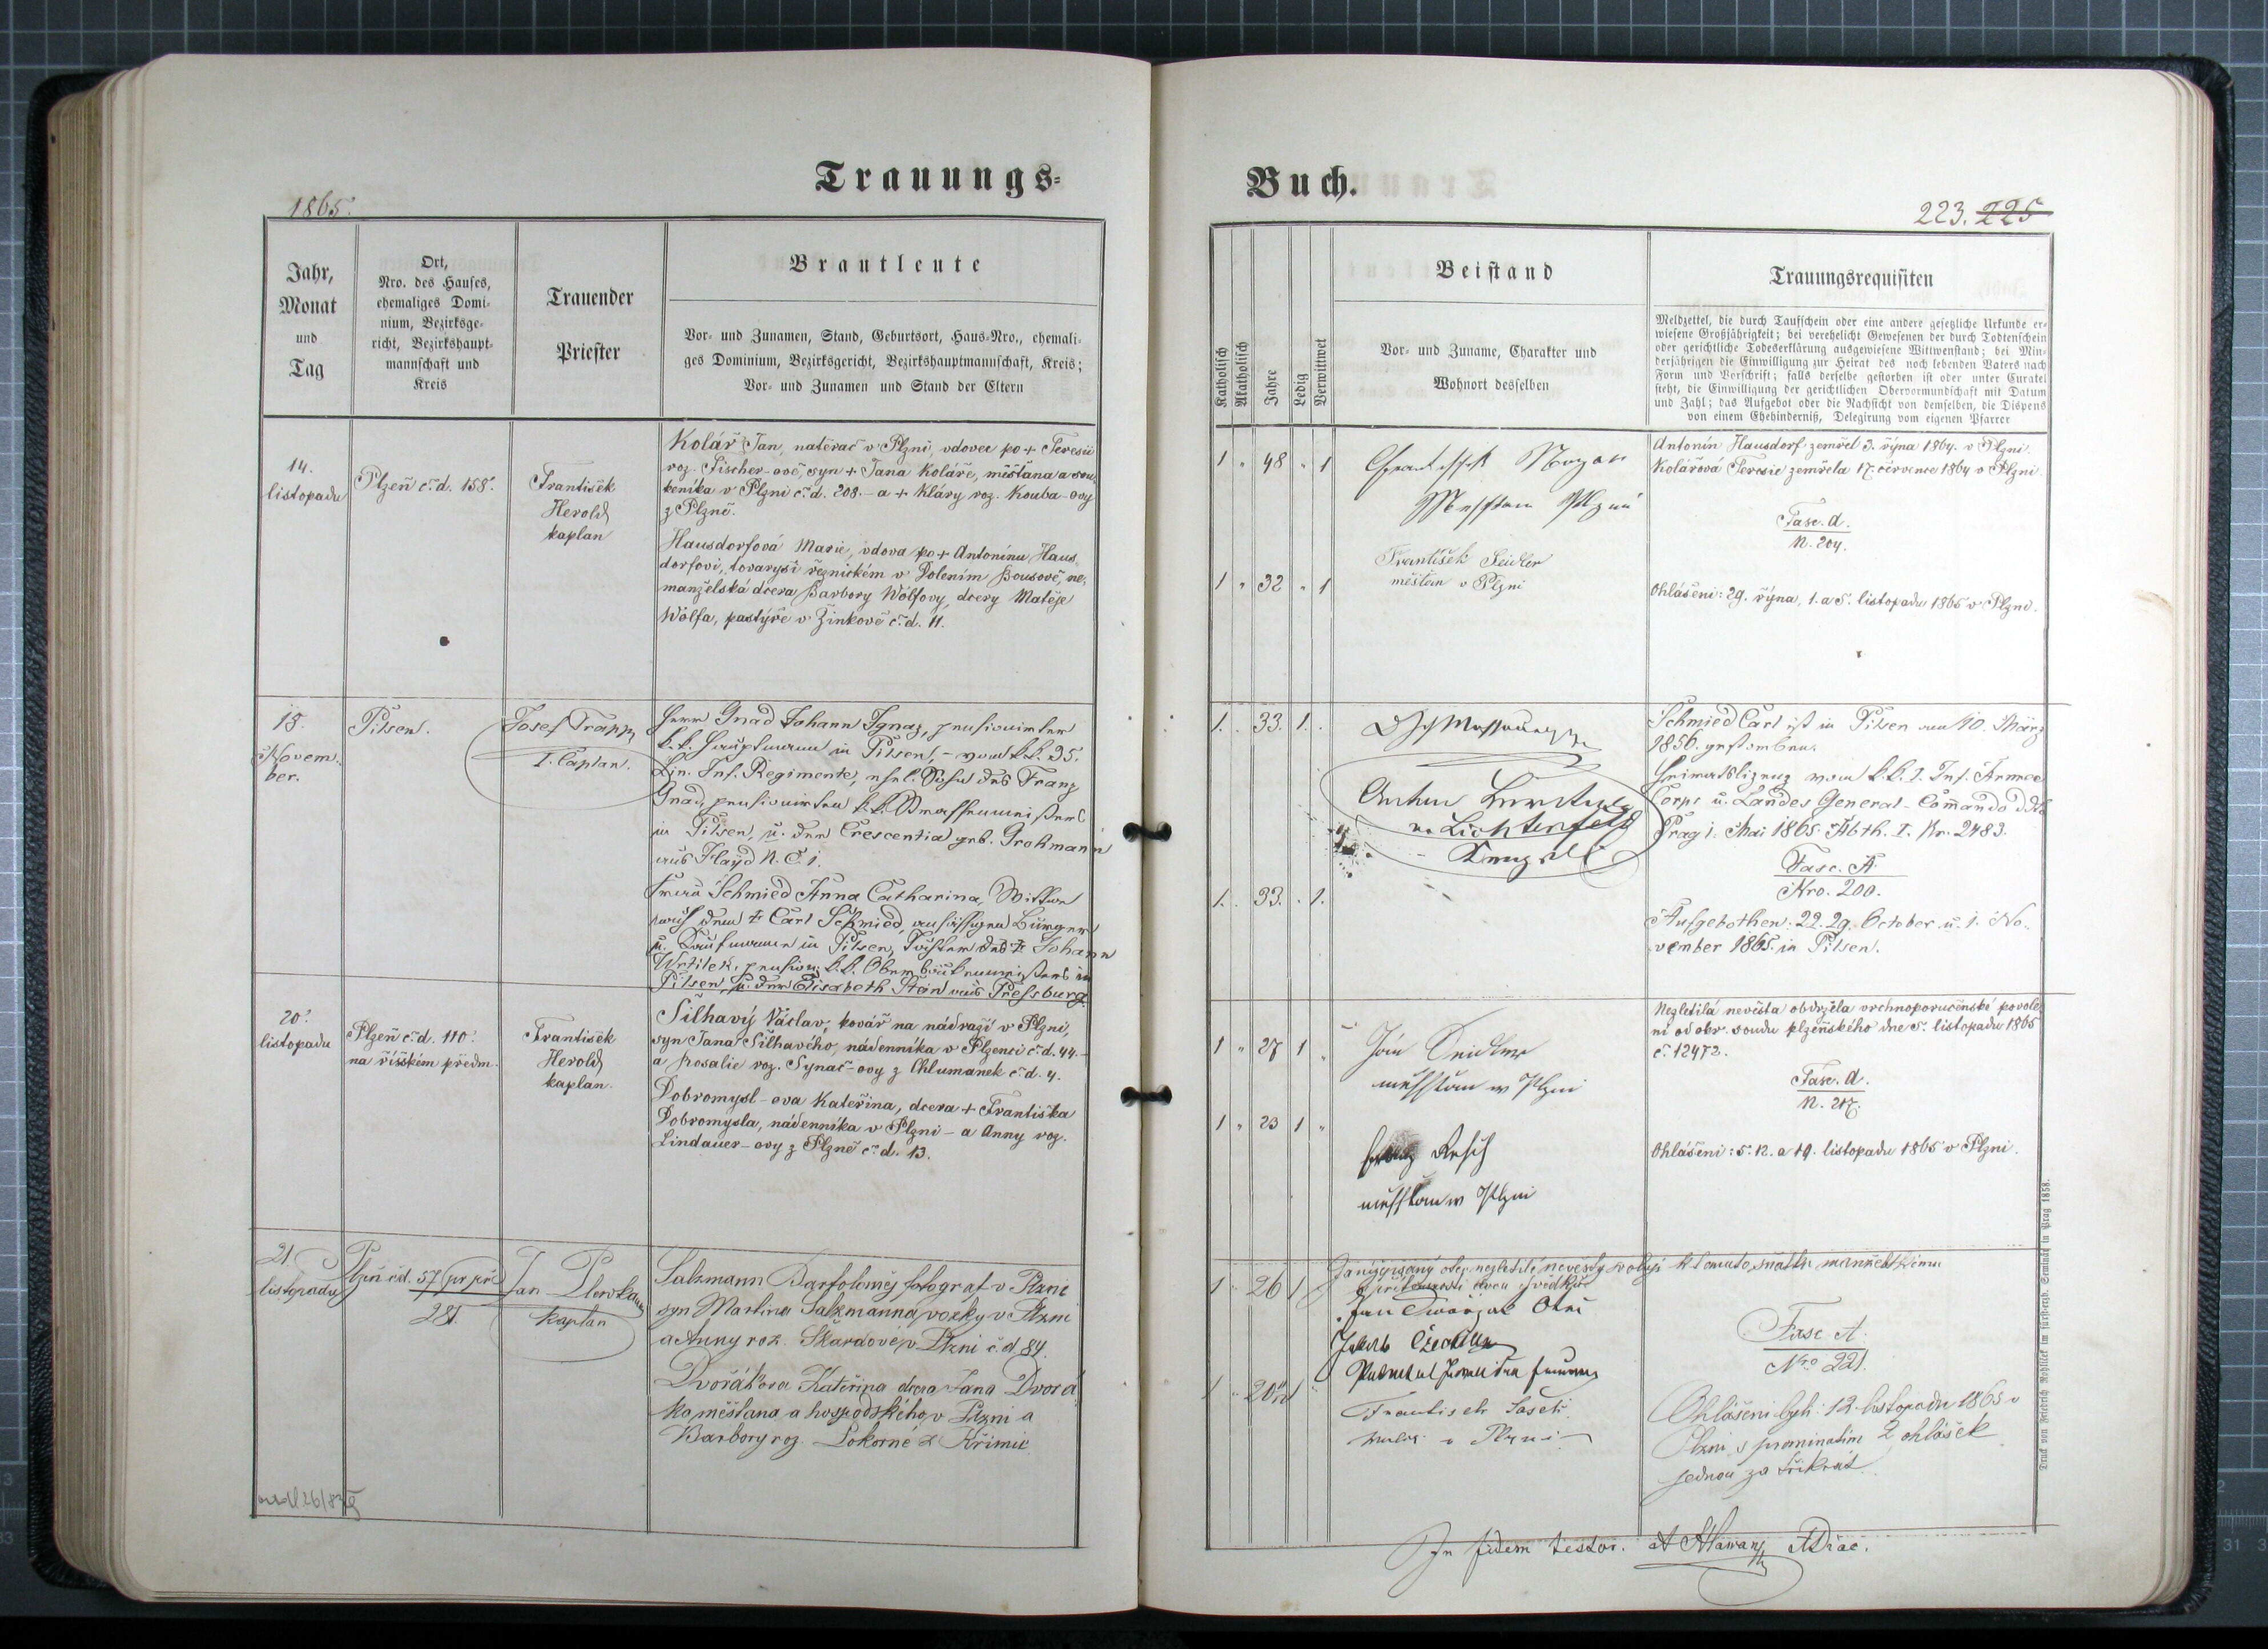 Trauungs-
1865.
Jahr,
Monat
und
Tag
Ort,
Nro. des Hauses,
ehemaliges Domi-
nium, Bezirksge-
richt, Bezirkshaupt-
mannschaft und
Kreis
Trauender
Priester
Brautleute
Vor- und Zunamen, Stand, Geburtsort, Haus-Nro., ehemali-
ges Dominium, Bezirksgericht, Bezirkshauptmannschaft, Kreis;
Vor- und Zunamen und Stand der Eltern
14.
listopadu
Plzeň č. d. 158.
František
Herold
kaplan
Kolář Jan, natěrač v Plzni, vdovec po + Teresii
roz. Fischer-ově, syn + Jana Koláře, měšťana a sou-
keníka v Plzni č. d. 208. - a + Kláry roz. Kouba-ovy
z Plzně.
Hausdorfová Marie, vdova po + Antonínu Haus-
dorfovi, tovaryši řeznickém v Dolením Bousově, ne-
manželská dcera Barbory Wölfovy, dcery Matěje
Wölfa, pastýře v Žinkově č. d. 11.
Novem-
ber.
Pilsen.
Josef Trapp
I. Caplan.
Herr Gnad Johann Ignaz, pensionirter
k. k. Hauptmann in Pilsen, - vom k. k. 35.
Lin. Inf. Regimente, ehel. Sohn des Franz
Gnad, pensionirten k. k. Straßenmeisters
in Pilsen, u. der Crescentia geb. Grohmann
aus Flayd N. C. 1.
Frau Schmied Anna Catharina, Wittwe
nach dem + Carl Schmied, ansässigen Bürger
u. Kaufmann in Pilsen, Tochter des + Johann
Wrtilek, pension. k. k. Oberbrückenmeisters in
Pilsen, u. der Elisabeth Stan aus Pressburg.
20.
listopadu
Plzeň č. d. 110.
na říšském předm.
František
Herold
kaplan.
Šilhavý Václav, kovář na nádraží v Plzni,
syn Jana Šilhavého, nádenníka v Plzenci č. d. 44. -
a Rosalie roz. Synač-ovy z Chlumánek č. d. 4.
Dobromysl-ova Kateřina, dcera + Františka
Dobromysla, nádenníka v Plzni - a Anny roz.
Lindauer-ovy z Plzně č. d. 13.
21
listopadu
Plzň čd. 57 pr. př.
281.
Jan
kaplan
Salzmann Bartoloměj fotograf v Plzni
syn Martina Salzmanna, vozky v Plzni
a Anny roz. Škardové v Plzni č. d. 84.
Dvořákova Kateřina dcera Jana Dvořá
ka měšťana a hospodského v Plzni a
Barbory roz. Pokorné z Křimic.
Buch.
223. 225
Katholisch
Akatholisch
Jahre
Ledig
Verwittwet
Beistand
Vor- und Zuname, Charakter und
Wohnort desselben
Trauungsrequisiten
Meldzettel, die durch Taufschein oder eine andere gesetzliche Urkunde er-
wiesene Großjährigkeit; bei verehelicht Gewesenen der durch Todtenschein
oder gerichtliche Todeserklärung ausgewiesene Wittwenstand; bei Min-
derjährigen die Einwilligung zur Heirat des noch lebenden Vaters nach
Form und Vorschrift; falls derselbe gestorben ist oder unter Curatel
steht, die Einwilligung der gerichtlichen Obervormundschaft mit Datum
und Zahl; das Aufgebot oder die Nachsicht von demselben, die Dispens
von einem Ehehinderniß, Delegirung vom eigenen Pfarrer
1 " 48 " 1
Plzni
František Seidler
měšťan v Plzni
1 " 32 " 1
Antonín Hausdorf zemřel 3. října 1864. v Plzni.
Kolářová Teresie zemřela 17. července 1864 v Plzni.
Fasc. A.
N. 204.
Ohlášení: 29. října, 1. a 5. listopadu 1865 v Plzni.
1. . 33. 1. .
v. Lichtenfels
1. . 33. . 1.
Schmied Carl ist in Pilsen am 10. März
1856. gestorben.
Heiratslizenz vom k. k. I. Inf. Armee
Corps u. Landes General-Commando ddo
Prag 1. Mai 1865. Abth. I. Nr. 2483.
Fasc. A
Nro. 200.
Aufgebothen: 22. 29. October u. 1. No-
vember 1865. in Pilsen.
1 " 27 1 "
Jan Seidler
měšťan w Plzni
1 " 23 1 "
Resch
měšťan w Plzni
Nezletilá nevěsta obdržela vrchnoporučenské povole
ní od okr. soudu plzeňského dne 5. listopadu 1865
č. 12472.
Fasc. A.
N. 217.
Ohlášení: 5. 12. a 19. listopadu 1865 v Plzni.
Janýpsaný otec nezletilé nevěsty svoluji k tomuto sňatku manželskému
v přítomnosti dvou svědků
1 " 26 1
Jan Dwořzak Otec
Jakub
1 " 20 1 "
Frantisek Sasek
v Plzni
Fasc A.
Nro 221.
Ohlášeni byli: 12. listopadu 1865 v
Plzni s prominutím 2 ohlášek
jednou za třikrát.
In fidem testor. A ADiac.
Druck von Friedrich Rohliček im fürst-erzb. Seminär in Prag 1858.